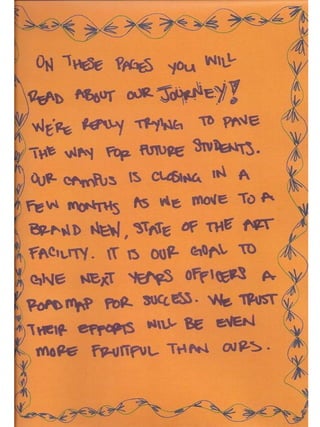 ON THESE PAGES YOU WILL
READ ABOUT OUR JOURNEY!
WE'RE REALLY TRYING TO PAVE
THE WAY FOR FUTURE STUDENTS.
OUR CAMPUS IS CLOSING IN A
FEW MONTHS AS WE MOVE TO A
BRAND NEW, STATE OF THE ART
FACILITY. IT IS OUR GOAL TO
GIVE NEXT YEARS OFFICERS A
ROADMAP FOR SUCCESS. WE TRUST
THEIR EFFORTS WILL BE EVEN
MORE FRUITFUL THAN OURS.